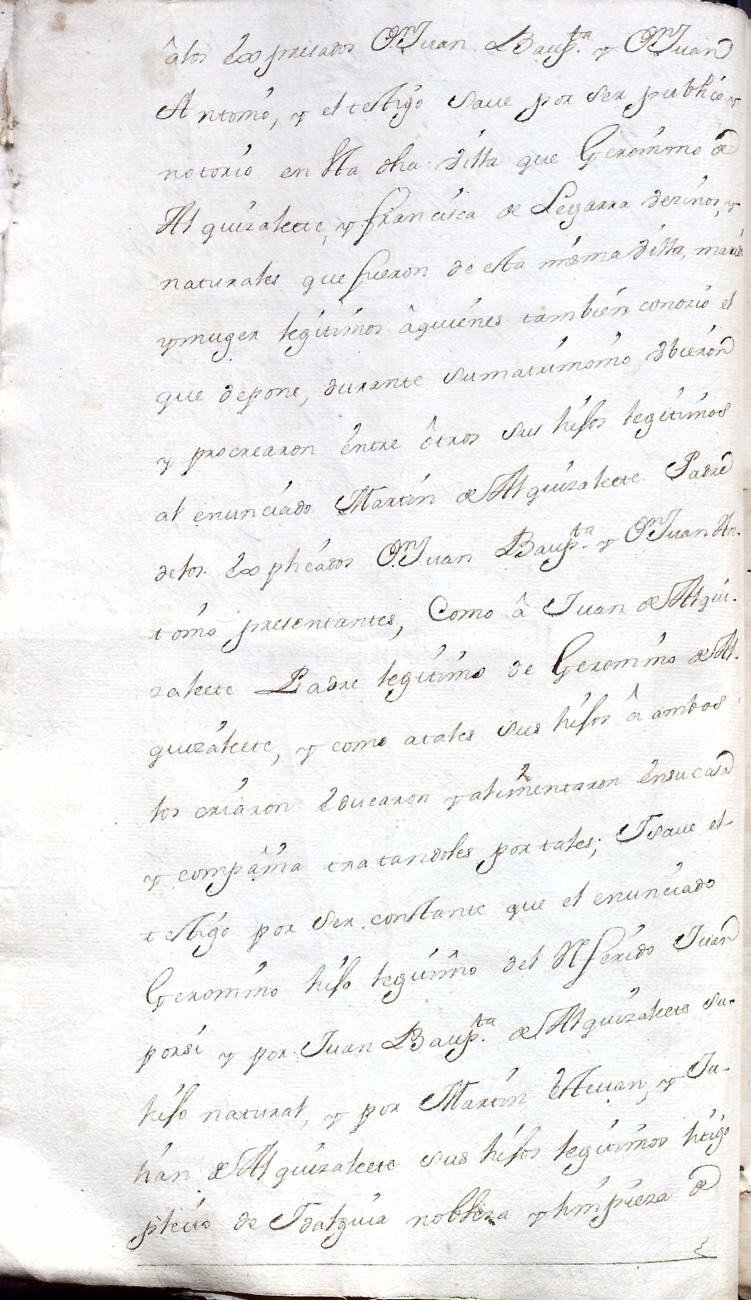 âlos êxpresados Dn Juan Baup.ta y Dn Juan
Antonio, y el testigo save por ser publico y
notorio en esta dha Villa que Geronimo de
Alquizalete, y Francisca de Legarra vezinos, y
naturales que fueron de esta misma Villa, marido
y muger legitimos âquienes tambien conozio el
que depone, durante su matrimonio obieron
y procrearon êntre ôtros sus hijos legitimos
al enunciado Martin de Alquizalete Padre
delos explicados Dn Juan Baup.ta y Dn Juan An-
tonio presentantes, Como â Juan de Alqui-
zalete Padre legitimo de Geronimo de Al-
quizalete, y como atales sus hijos â ambos
los criaron êducaron y alimentaron ênsu casa
y compâñia tratandoles por tales; Y save el
testigo por ser constante que el enunciado
Geronimo hijo legitimo del referido Juan
porsi y por Juan Baup.ta de Alquizalete su
hijo natural, y por Martin Estevan, y Ju-
han de Alquizalete sus hijos legitimos litigo
pleito de Ydalguia nobleza y limpieza de